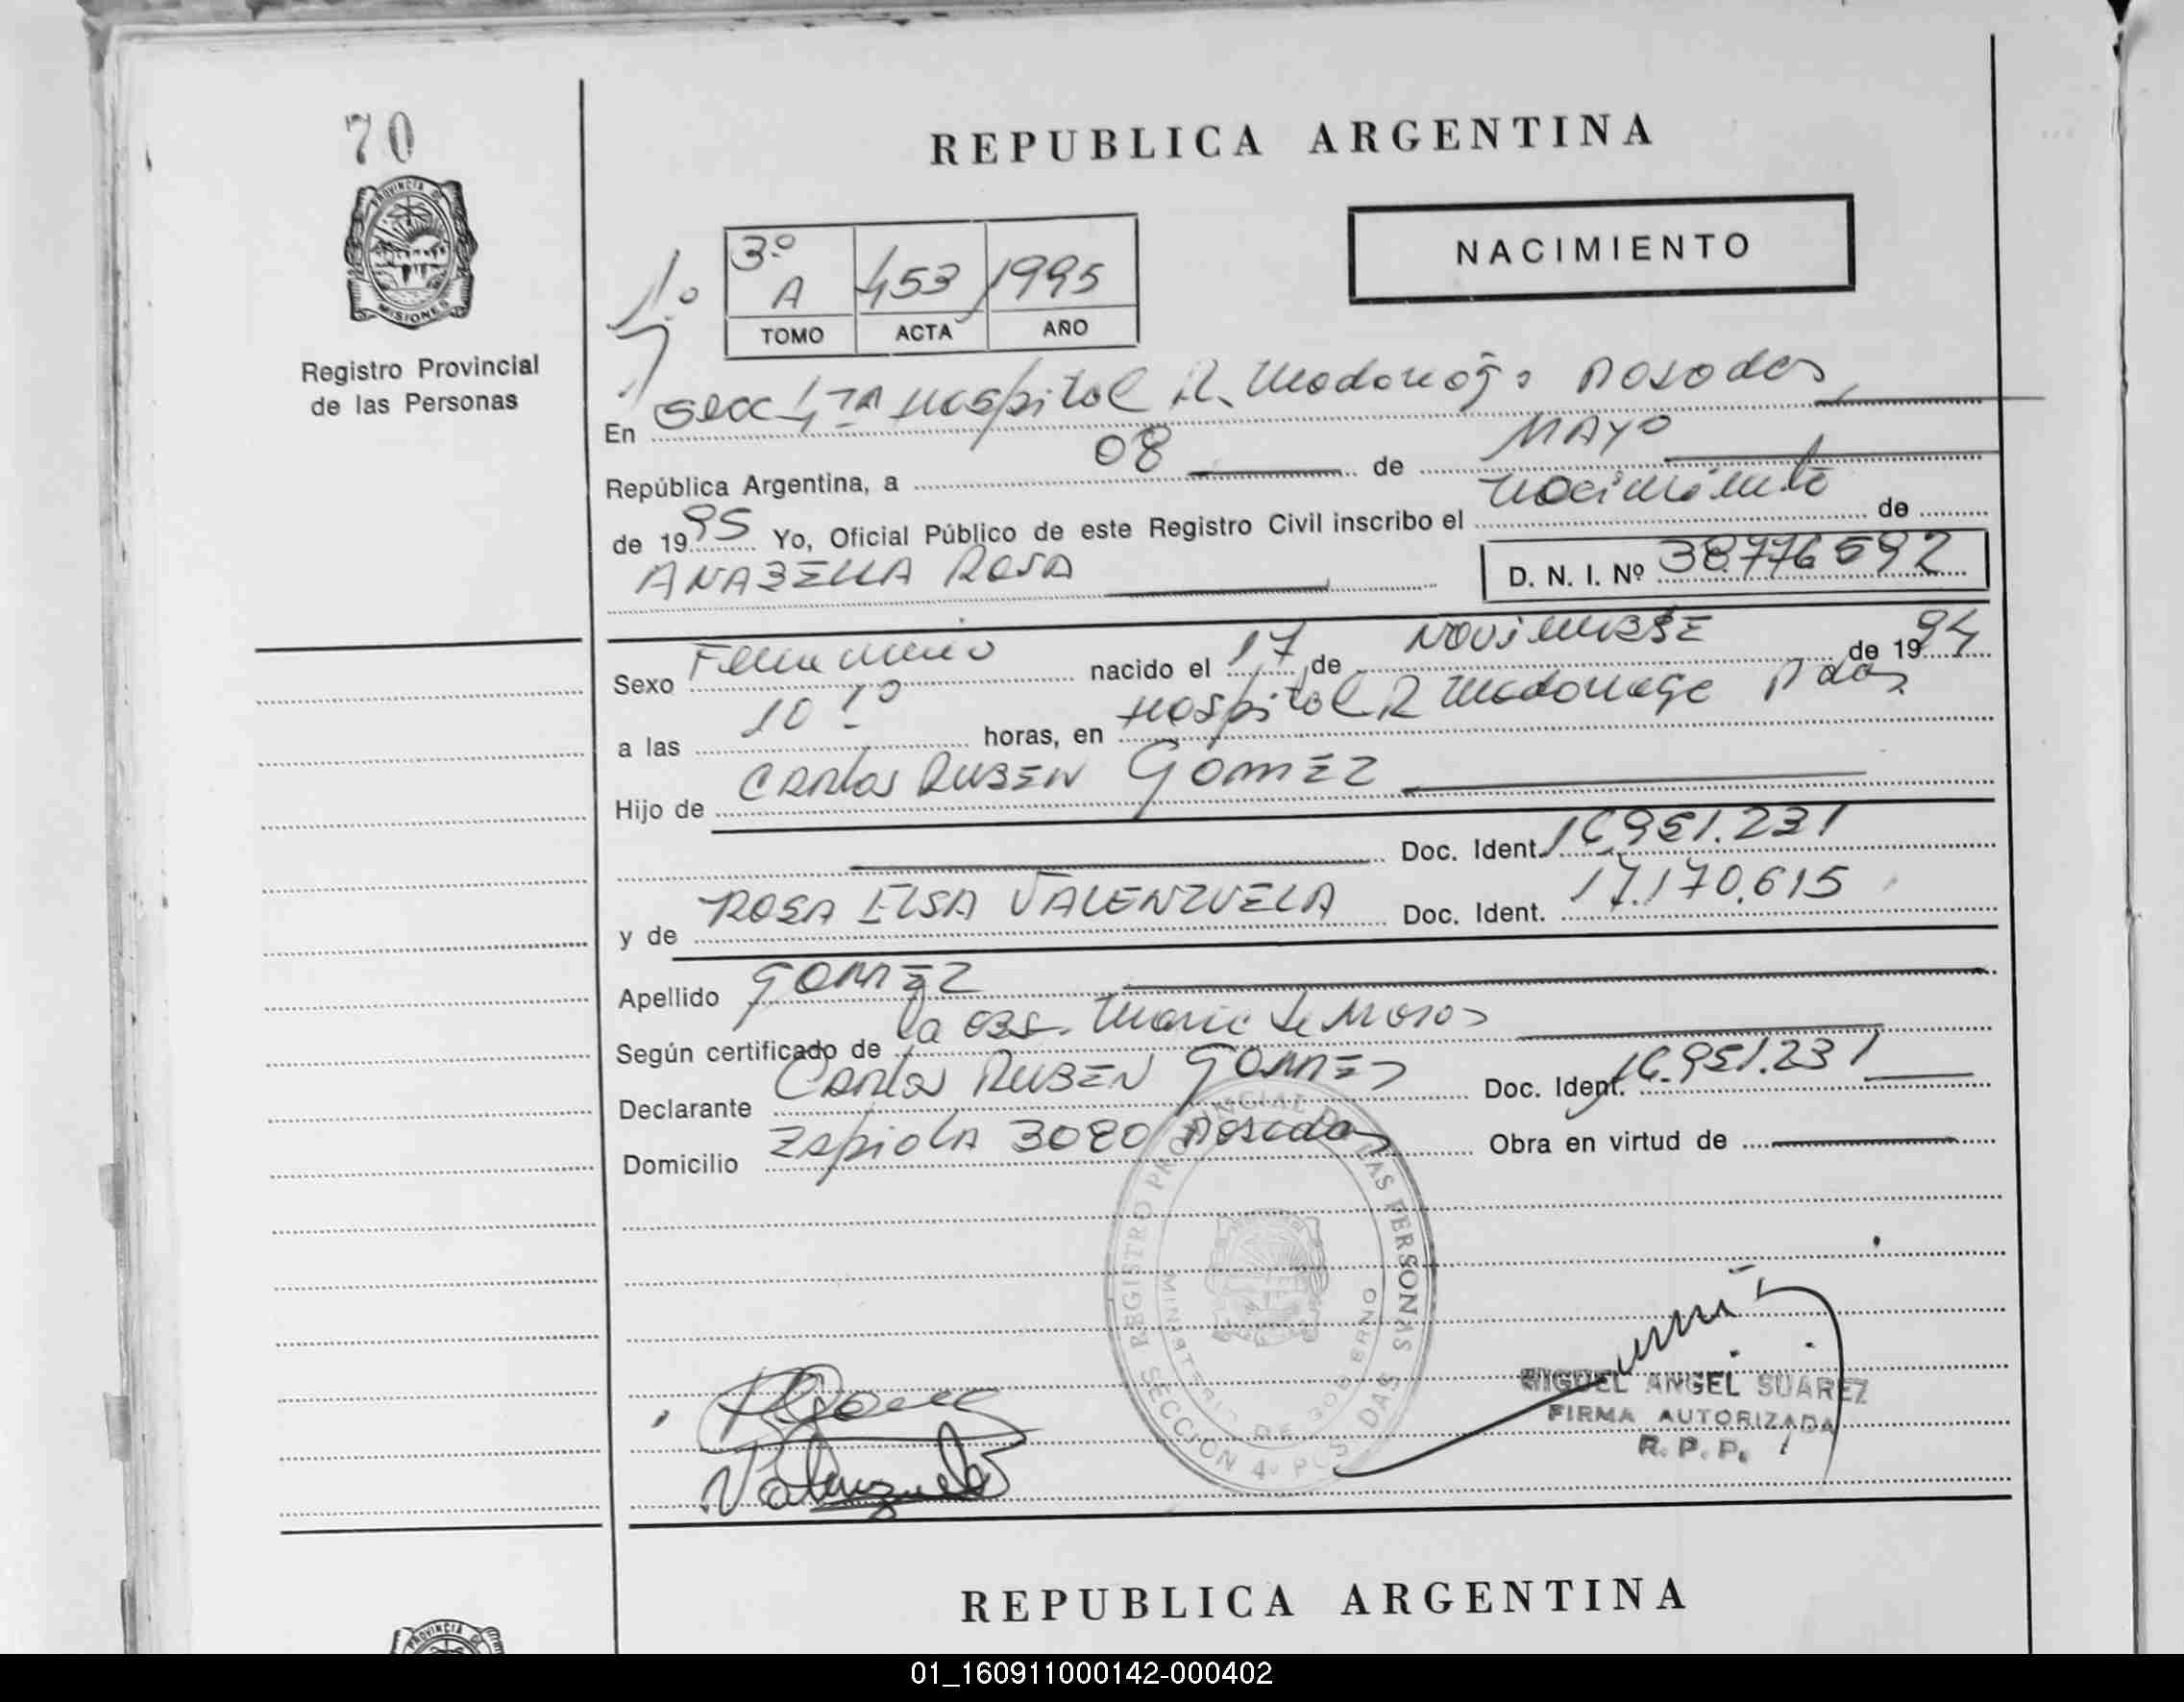 70
REPUBLICA ARGENTINA
PROVINCIA DE
MISIONES
NACIMIENTO
3º A 453 1995
TOMO ACTA AÑO
Registro Provincial
de las Personas
En Secc 4TA Hospital R. Madariaga Posadas
República Argentina, a 08 de MAYO
de 1995 Yo, Oficial Público de este Registro Civil inscribo el nacimiento de
ANABELLA ROSA D. N. I. Nº 38.776592
Sexo Femenino nacido el 17 de NOVIEMBRE de 1994
a las 10 10 horas, en Hospital R Madariaga Pdas
Hijo de Carlos RUBEN GOMEZ
Doc. Ident. 16.951.231
y de ROSA ELSA VALENZUELA Doc. Ident. 17.170.615
Apellido GOMEZ
Según certificado de la OBS. Maria de
Declarante Carlos RUBEN GOMEZ Doc. Ident. 16.951.231
Domicilio Zapiola 3080 Posadas Obra en virtud de
REGISTRO PROVINCIAL DE LAS PERSONAS
MINISTERIO DE GOBIERNO
SECCION 4ª POSADAS
Valenzuela
MIGUEL ANGEL SUAREZ
FIRMA AUTORIZADA
R. P. P.
REPUBLICA ARGENTINA
PROVINCIA DE
01_160911000142-000402